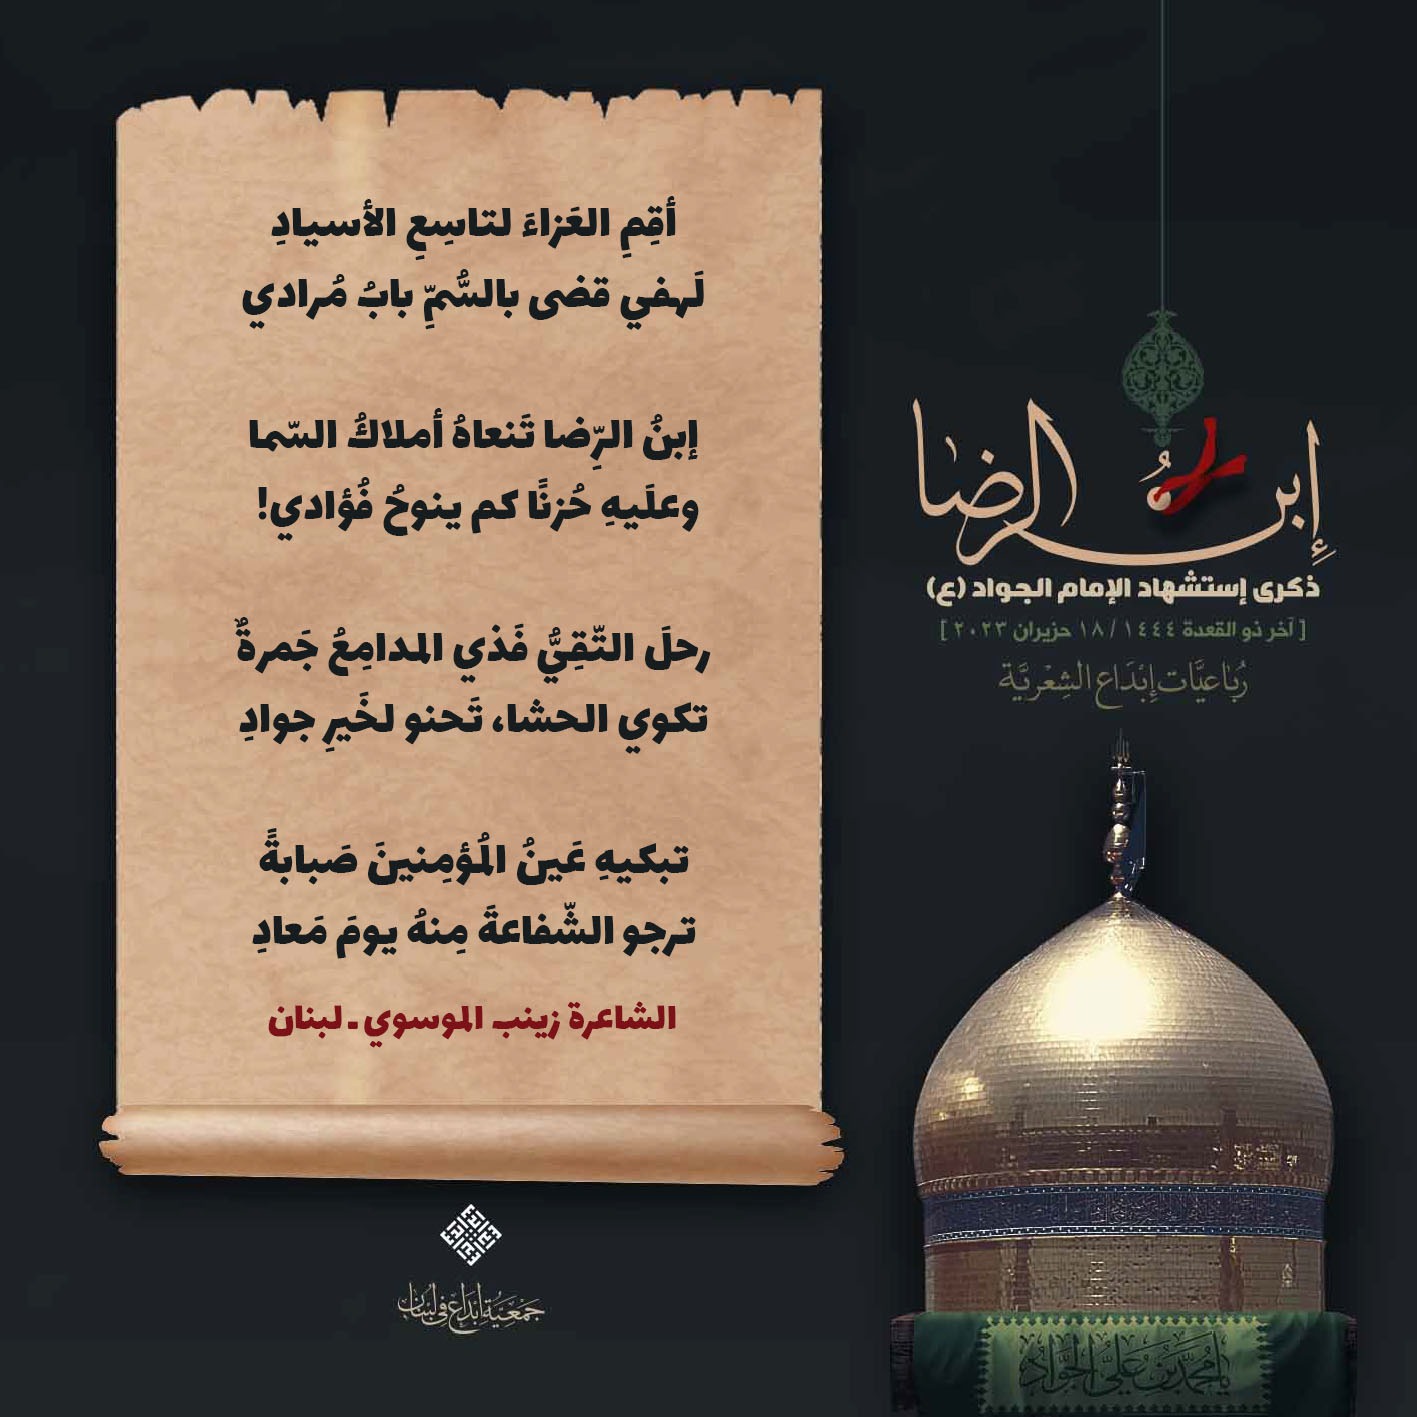 أقِمِ العَزاءَ لتاسِعِ الأسيادِ
لَهفي قضى بالسُّمِّ بابُ مُرادي
إبنُ الرِّضا تَنعاهُ أملاكُ السّما
وعلَيهِ حُزنًا كم ينوحُ فُؤادي!
رحلَ التّقِيُّ فَذي المدامِعُ جَمرةٌ
تكوي الحشا، تَحنو لخَيرِ جوادِ
تبكيهِ عَينُ المُؤمِنينَ صَبابةً
ترجو الشّفاعةَ مِنهُ يومَ مَعادِ
الشاعرة زينب الموسوي ـ لبنان
إبنُ الرضا
ذكرى إستشهاد الإمام الجواد (ع)
[ آخر ذو القعدة ١٤٤٤ / ١٨ حزيران ٢٠٢٣ ]
رُبَاعيَّات إبْدَاع الشِعْريَّة
يا مُحمَّد بن عَليٍّ الجَوَادُ
جَمْعِيَّةُ إبْدَاع في لبْنَان